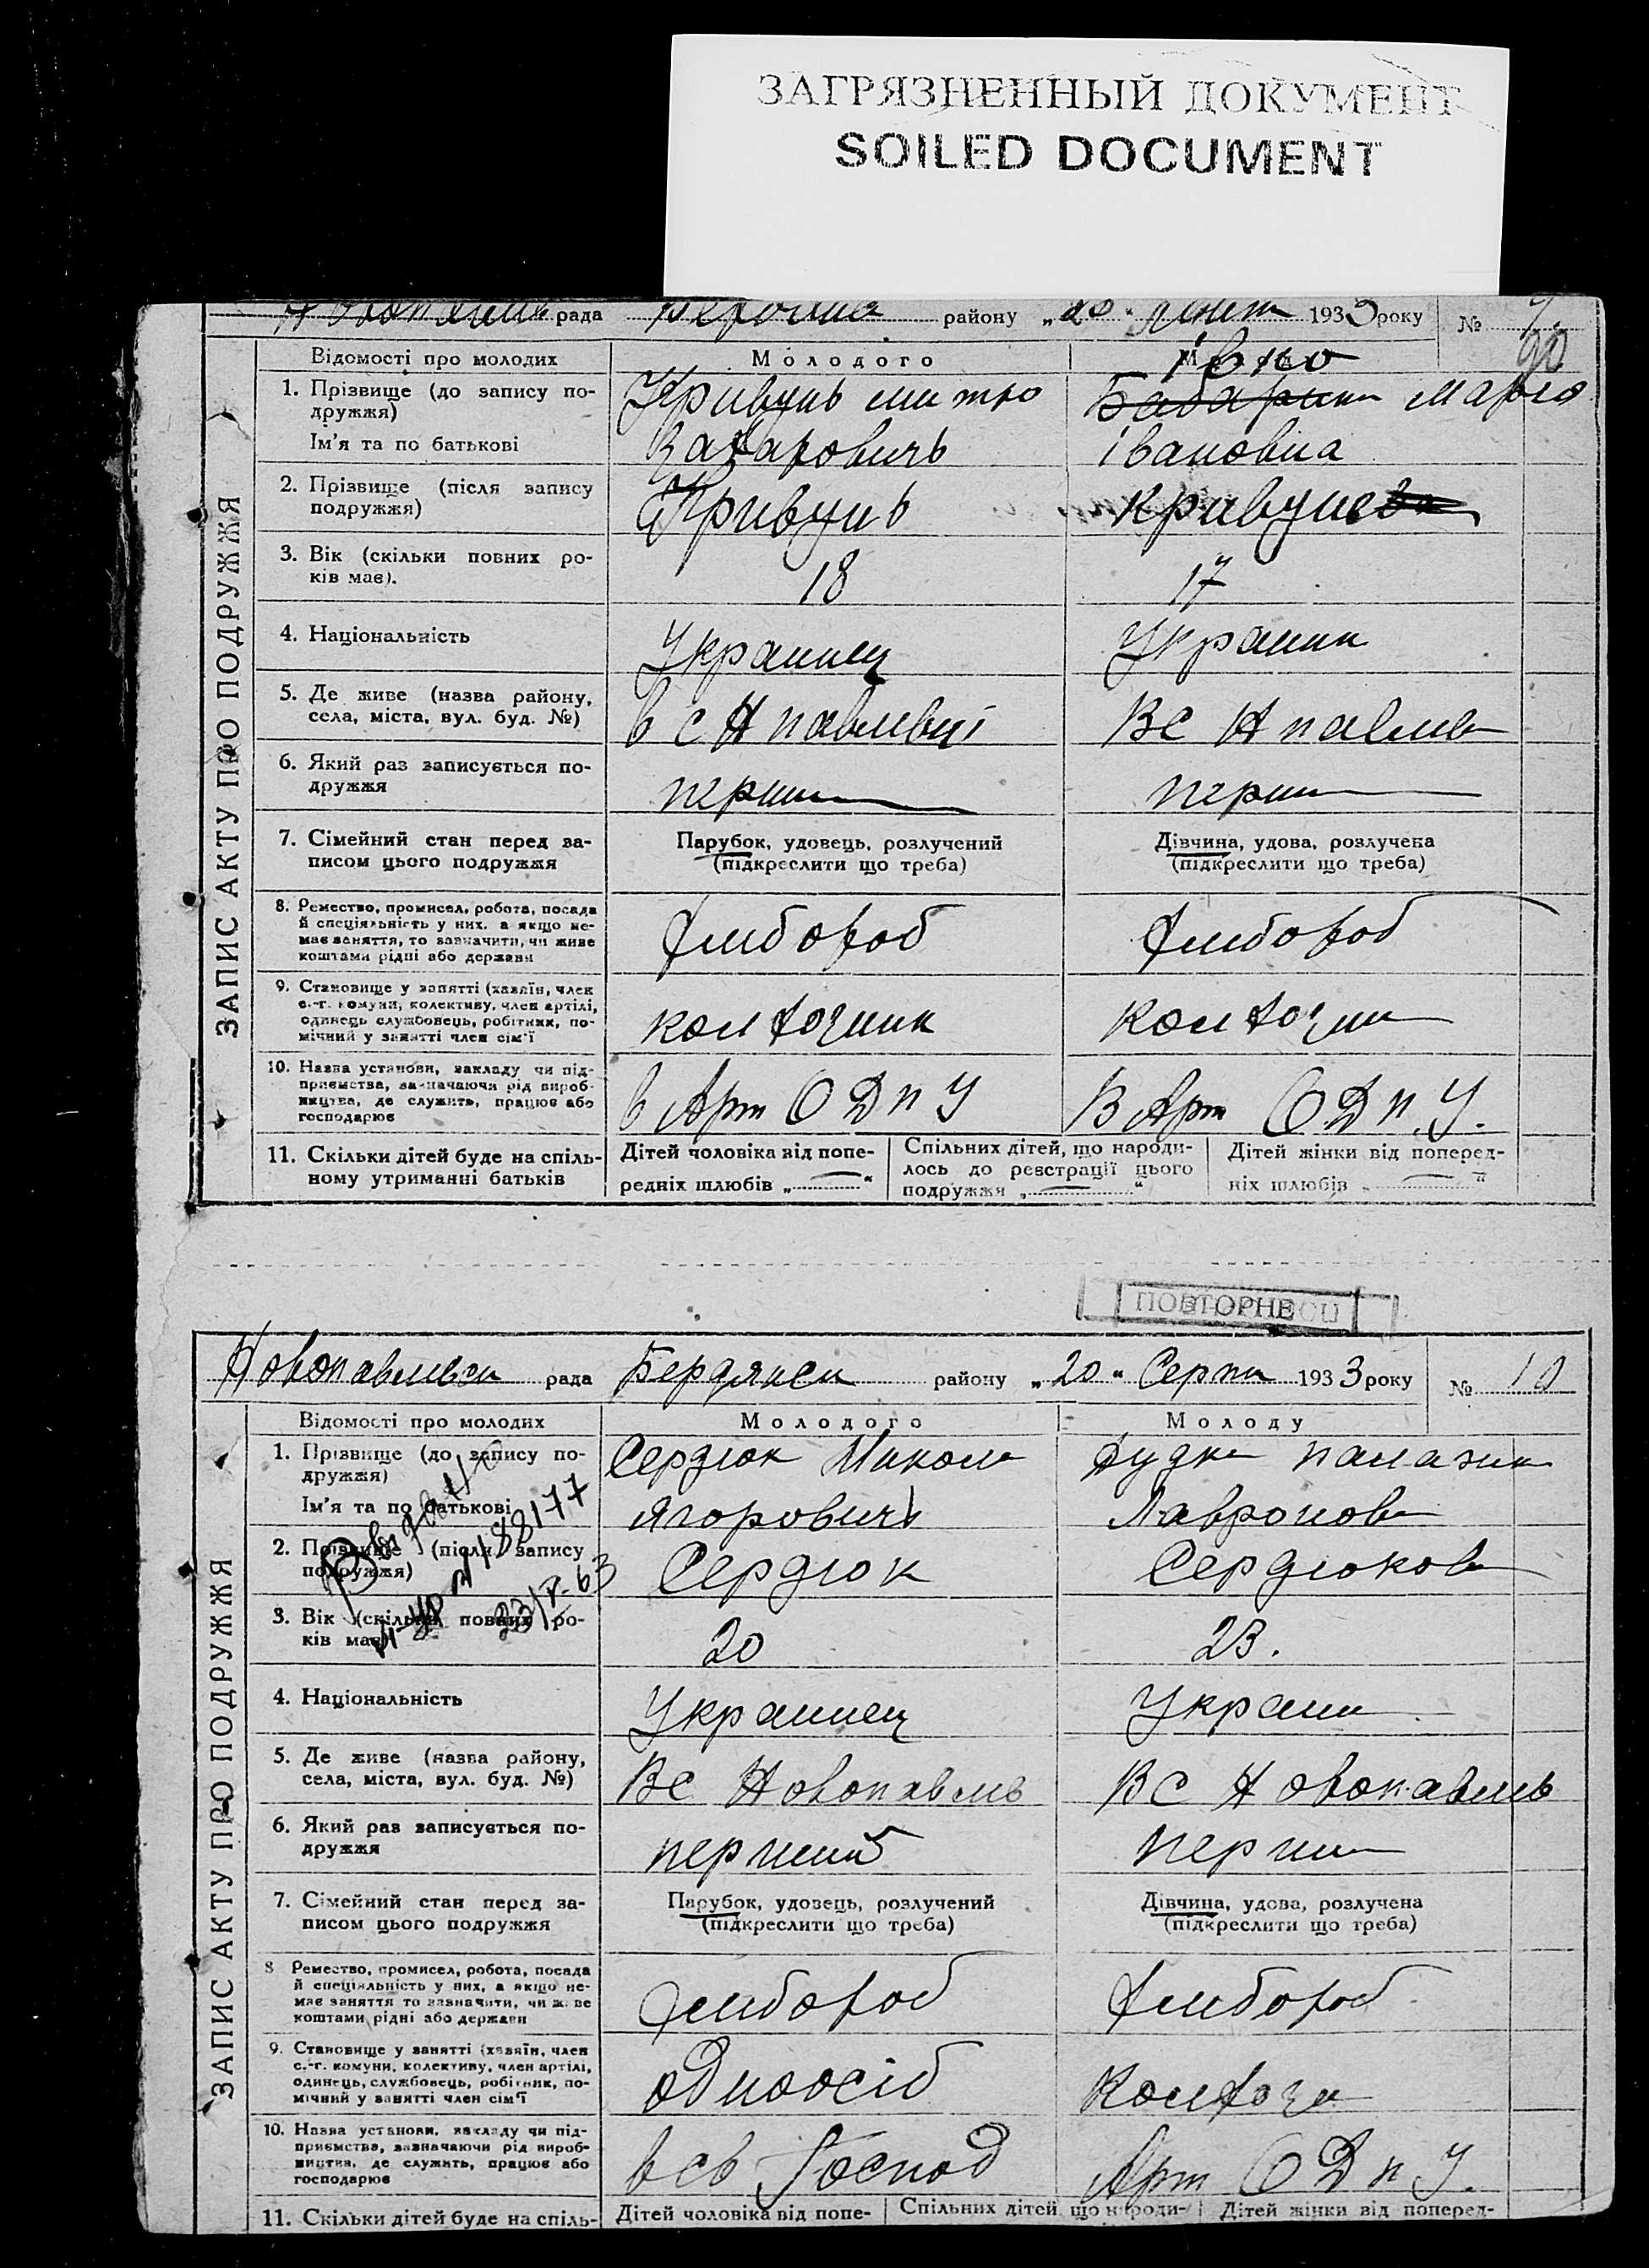 ЗАГРЯЗНЕННЫЙ ДОКУМЕНТ
SOILED DOCUMENT
рада району „20" 1933 року №
Відомості про молодих Молодого
ЗАПИС АКТУ ПРО ПОДРУЖЖЯ
1. Прізвище (до запису по-
дружжя)
Ім'я та по батькові
Кривунь
Захаровичь
Мария
івановна
2. Прізвище (після запису
подружжя)
Кривунь
3. Вік (скільки повних ро-
ків має).
18 17
4. Національність
Украинец Украинк
5. Де живе (назва району,
села, міста, вул. буд. №)
в с Н павливці Вс Н павлив
6. Який раз записується по-
дружжя
перши перши
7. Сімейний стан перед за-
писом цього подружжя
Парубок, удовець, розлучений
(підкреслити що треба)
Дівчина, удова, розлучена
(підкреслити що треба)
8. Ремество, промисел, робота, посада
й спеціяльність у них, а якщо не-
має заняття, то зазначити, чи живе
коштами рідні або держави
хлибороб хлибороб
9. Становище у занятті (хазяїн, член
с.-г. комуни, колективу, член артілі,
одинець службовець, робітник, по-
мічний у занятті член сім'ї
колхозник колхозни
10. Назва установи, закладу чи під-
приємства, зазначаючи рід вироб-
ництва, де служить, працює або
господарює
в Арт О Д П У В Арт О Д П. У.
11. Скільки дітей буде на спіль-
ному утриманні батьків
Дітей чоловіка від попе-
редніх шлюбів „ "
Спільних дітей, що народи-
лось до реєстрації цього
подружжя „ "
Дітей жінки від поперед-
ніх шлюбів „ "
ПОВТОРНЕ
Новопавливск рада Бердянск району „20" Серпн 1933 року № 10
Відомості про молодих Молодого Молоду
ЗАПИС АКТУ ПРО ПОДРУЖЖЯ
1. Прізвище (до запису по-
дружжя)
Ім'я та по батькові
Сердюк Микола
Ягоровичь
Дудка Палажка
2. Прізвище (після запису
подружжя)
Сердюк Сердюков
3. Вік (скільки повних ро-
ків має)
20 23.
4. Національність
Украинец Украин
5. Де живе (назва району,
села, міста, вул. буд. №)
Вс Новопавлив Вс Новопавлив
6. Який раз записується по-
дружжя
перший перши
7. Сімейний стан перед за-
писом цього подружжя
Парубок, удовець, розлучений
(підкреслити що треба)
Дівчина, удова, розлучена
(підкреслити що треба)
8 Ремество, промисел, робота, посада
й спеціяльність у них, а якщо не-
має заняття то зазначити, чи живе
коштами рідні або держави
хлибороб хлибороб
9. Становище у занятті (хазяїн, член
с.-г. комуни, колективу, член артілі,
одинець, службовець, робітник, по-
мічний у занятті член сім'ї
одноосіб колхозн
10. Назва установи, закладу чи під-
приємства, зазначаючи рід вироб-
ництва, де служить, працює або
господарює
в св Господ Арт О Д П У.
11. Скільки дітей буде на спіль-
Дітей чоловіка від попе-
Спільних дітей що народи-
Дітей жінки від поперед-